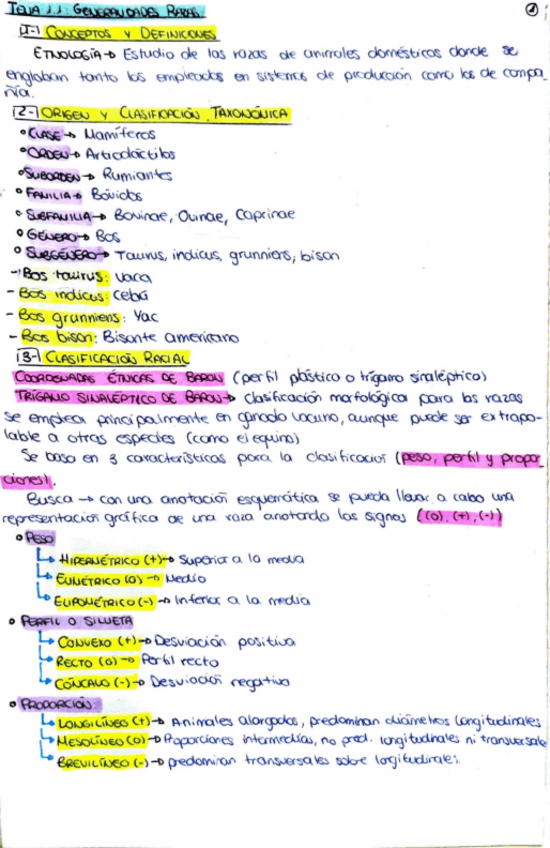 TEMA 1.1: GENERALIDADES RAZAS. 1
1-| CONCEPTOS Y DEFINICIONES
ETNOLOGÍA → Estudio de las razas de animales domésticos donde se
engloban tanto los empleados en sistemas de producción como los de compa-
ñía.
2-| ORIGEN Y CLASIFICACIÓN TAXONÓNICA
• CLASE → Mamíferos
• ORDEN → Artiodáctilos
• SUBORDEN → Rumiantes
• FAMILIA → Bóvidos
• SUBFAMILIA → Bovinae, Ovinae, Caprinae
• GÉNERO → Bos
• SUBGÉNERO → Taurus, indicus, grunniens, bison
- Bos taurus: vaca
- Bos indicus: cebú
- Bos grunniens: Yac
- Bos bison: Bisonte americano
3-| CLASIFICACIÓN RACIAL
COORDENADAS ÉTNICAS DE BARON (perfil plástico o trígamo sinaléptico)
TRÍGAMO SINALÉPTICO DE BARON → clasificación morfológica para las razas
Se emplea principalmente en ganado vacuno, aunque puede ser extrapo-
lable a otras especies (como el equino)
Se basa en 3 características para la clasificación (peso, perfil y propor-
ciones).
Busca → con una anotación esquemática se pueda llevar a cabo una
representación gráfica de una raza anotando los signos ((0), (+), (-))
• PESO
↳ HIPERMÉTRICO (+) → Superior a la media
↳ EUMÉTRICO (0) → Medio
↳ ELIPOMÉTRICO (-) → Inferior a la media
• PERFIL O SILUETA
↳ CONVEXO (+) → Desviación positiva
↳ RECTO (0) → Perfil recto
↳ CÓNCAVO (-) → Desviación negativa
• PROPORCIÓN:
↳ LONGILÍNEO (+) → Animales alargados, predominan diámetros longitudinales
↳ MESOLÍNEO (0) → Proporciones intermedias, no pred. longitudinales ni transversale
↳ BREVILÍNEO (-) → predominan transversales sobre longitudinales.